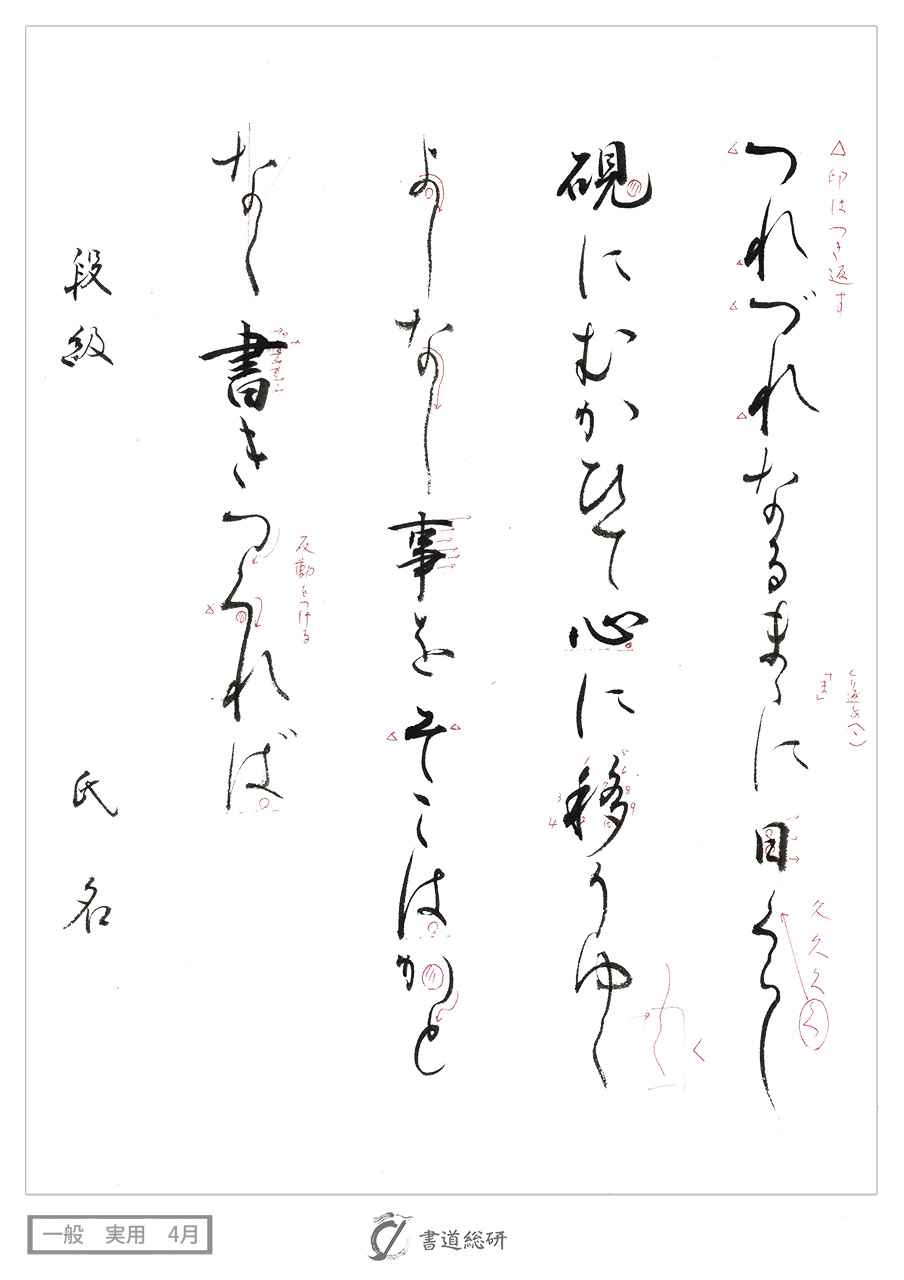 つれづれなるまゝに目くらし
硯にむかひて心に移りゆく
よしなし事をそこはかと
なく書きつくれば
段級 氏名
△印はつき返す
くり返し(へ)
「ま」
久久久く
く
反動をつける
1 2 3 4 5 6 7 8 9 10
一般 実用 4月
書道総研